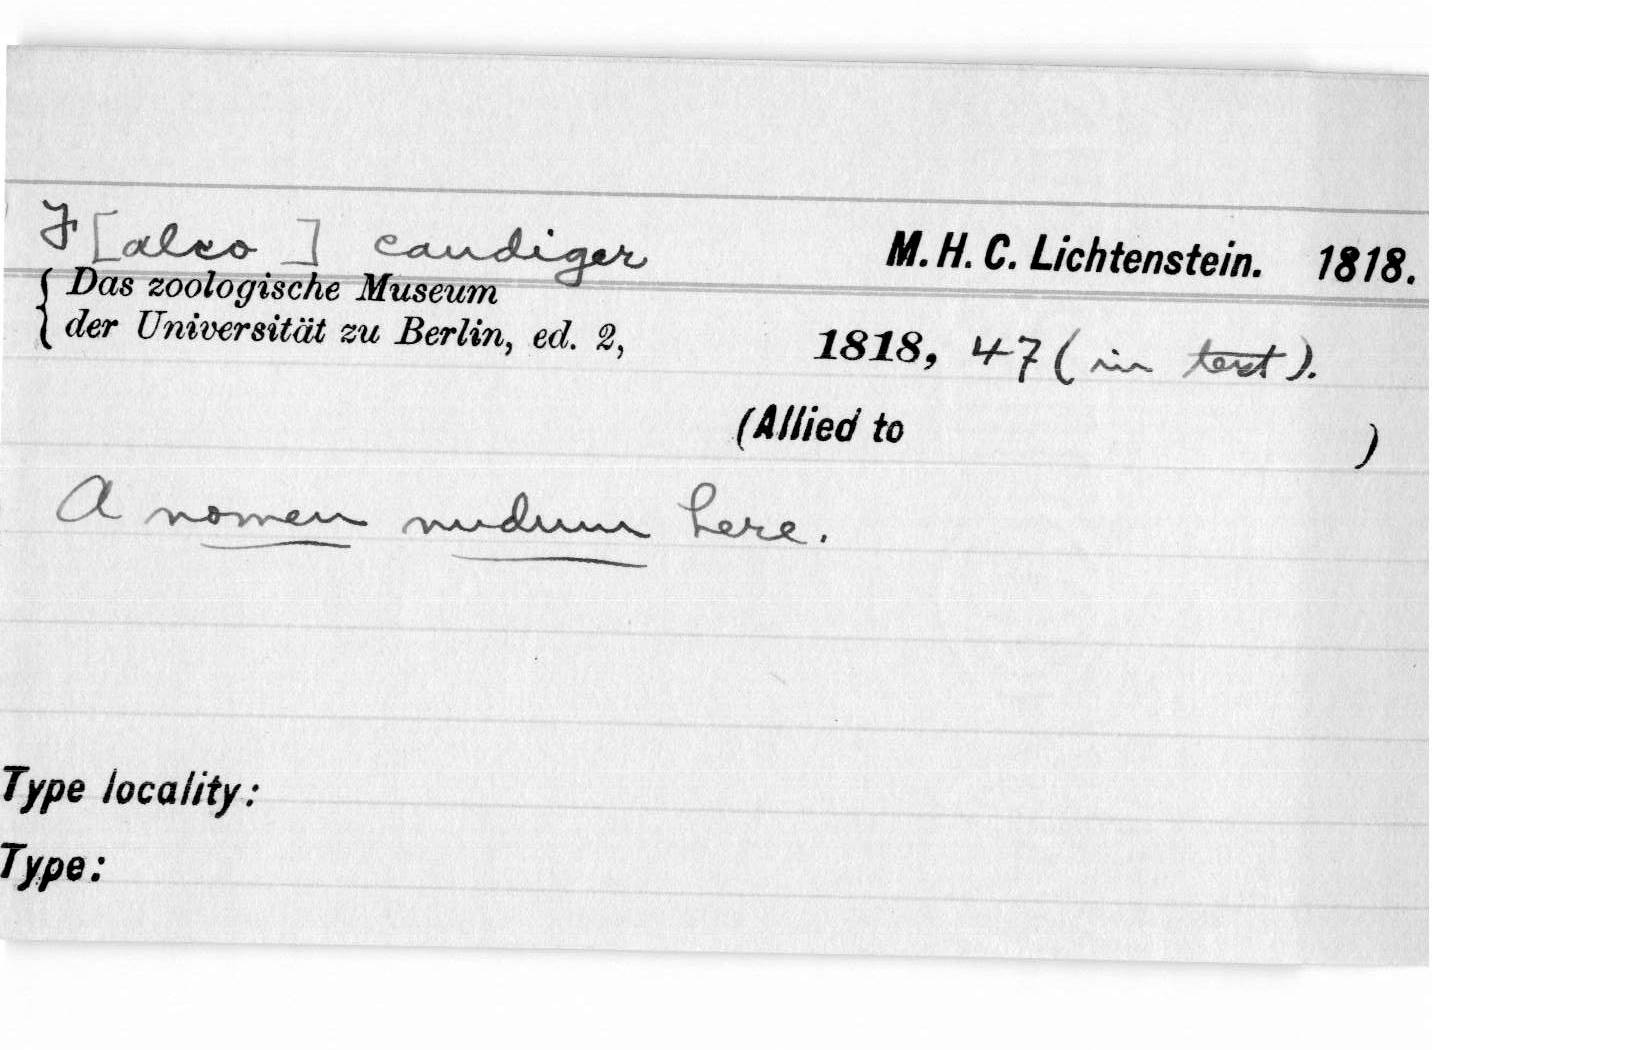 F[alco] caudiger M. H. C. Lichtenstein. 1818.
{ Das zoologische Museum
der Universität zu Berlin, ed. 2, 1818, 47 (in text).
(Allied to )
A nomen nudum here.
Type locality:
Type: